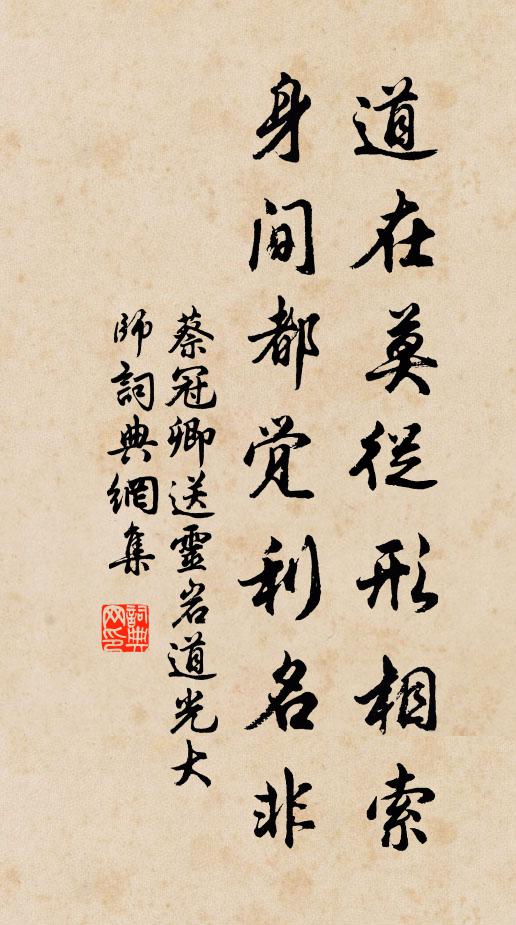 道在莫從形相索
身間都覺利名非
蔡冠卿送靈岩道光大
師詞典網集
詞典網印